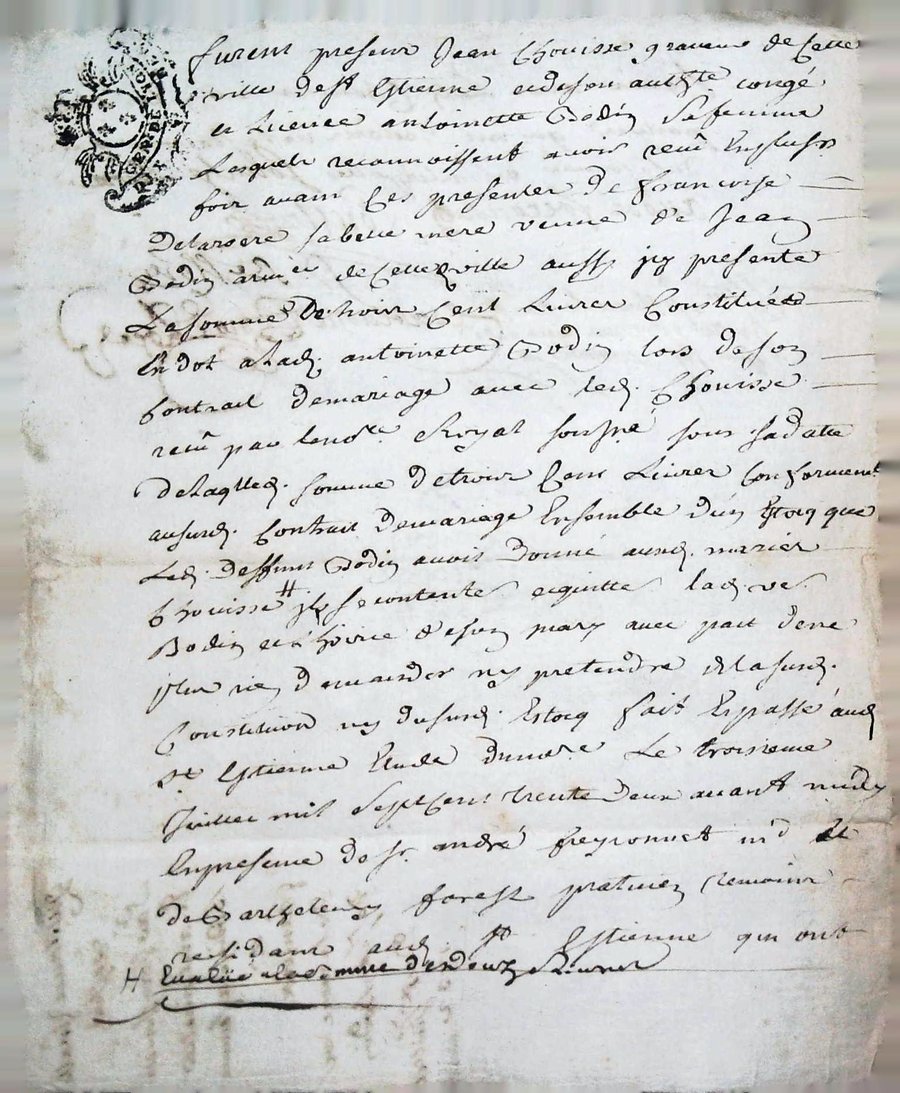 furent presents Jean Thouisse graveur de Cette
ville de st Estienne et de son authte congé
et Licence antoinette Bodin Sa femme
Lesquels reconnoissent avoir reçu En plusrs
fois avant Ces presentes de francoise
sa belle mere veuve de Jean
Bodin de Cette ville aussy icy presente
La somme De trois Cent Livres Constituées
En dot a lad. antoinette Bodin lors de son
Contrait de mariage avec led. Thouisse
reçu par le nore Royal soussné sous sa datte
De laqlled. somme de trois Cens Livres Conformement
au susd. Contrait de mariage Ensemble d'un Estocq que
Led. Deffunt Bodin avoit Donné ausd. mariés
Thouisse # ils se contente et quitte lad. ve.
Bodin et L'hoirie de son mary avec pact de ne
plus rien demander ny pretendre de la susd.
Constitution ny du susd. Estocq fait Et passé aud.
st Estienne Etude du nore. Le troisieme
Juillet mil Sept Cent trente Deux avant midy
En presence de sr. andré freyronnet md et
de Barthelemy forest praticien temoins
residants aud. st Estienne qui ont
# Evalué a la somme de douze Livres